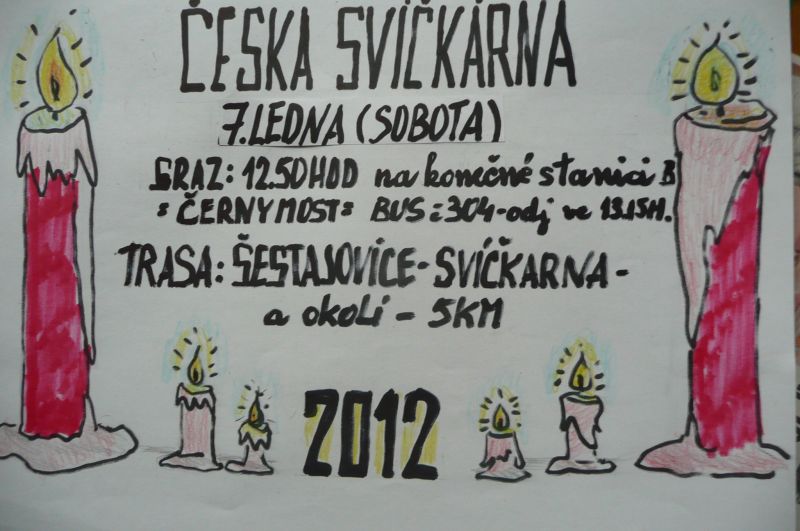 ČESKA SVÍČKÁRNA
7.LEDNA (SOBOTA)
SRAZ: 12.50HOD na konečné stanici B
"ČERNY MOST" BUS: 304-odj ve 13.15H.
TRASA: ŠESTAJOVICE- SVÍČKARNA-
a okolí - 5KM
2012